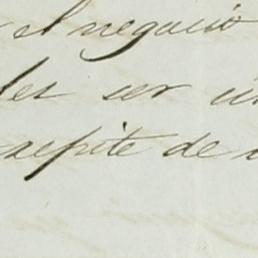 el negocio
les ser
repite de